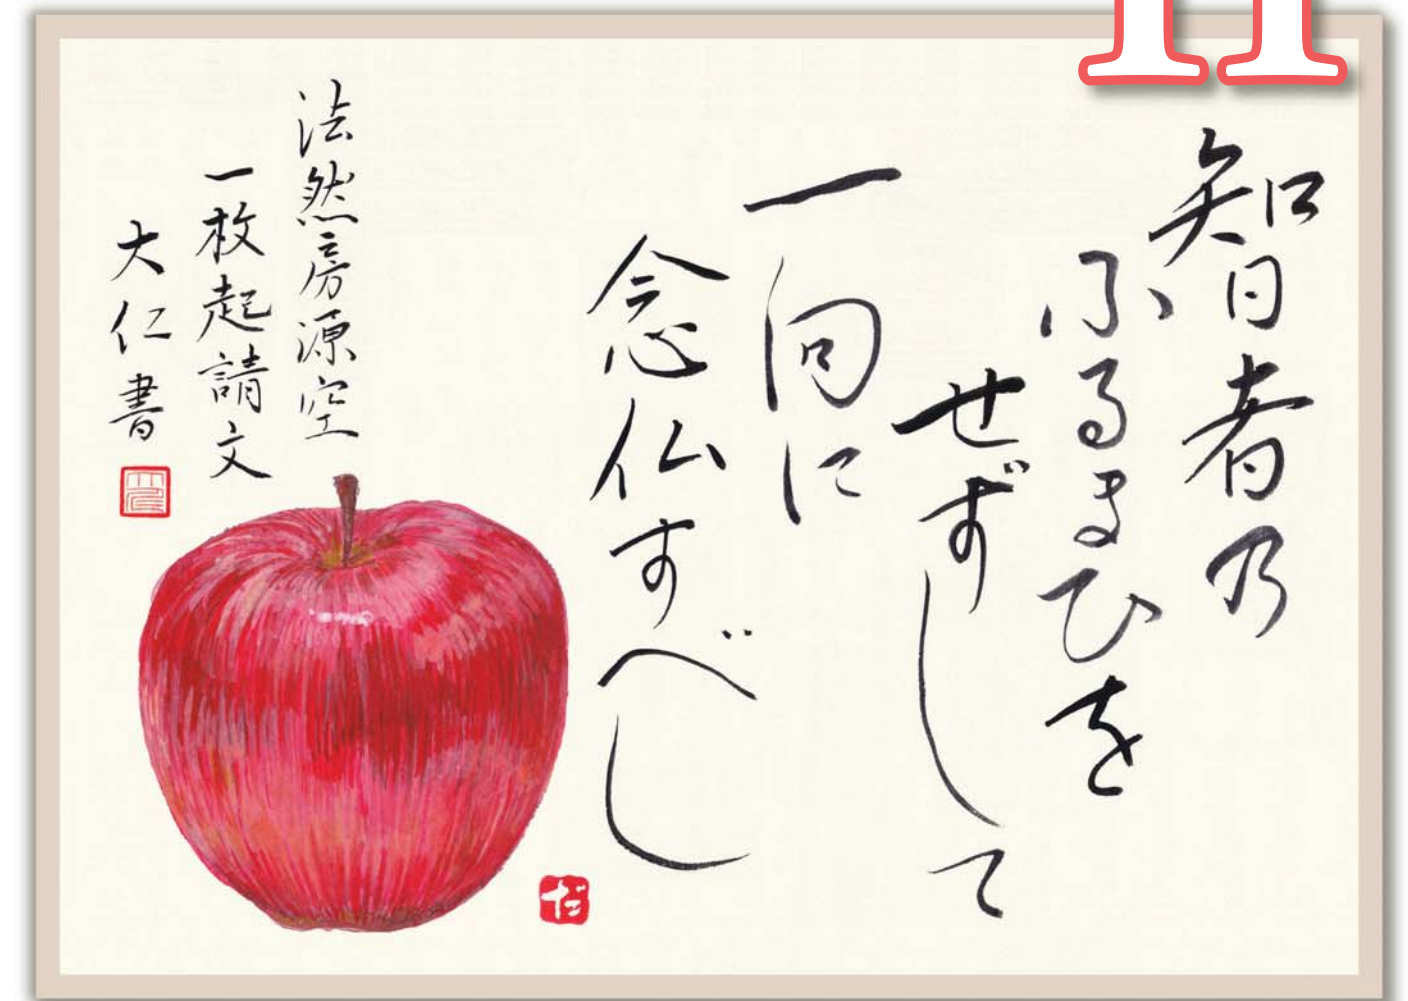 11
智者乃
ふるまひを
せずして
一向に
念仏すべし
法然房源空
一枚起請文
大仁書
だ